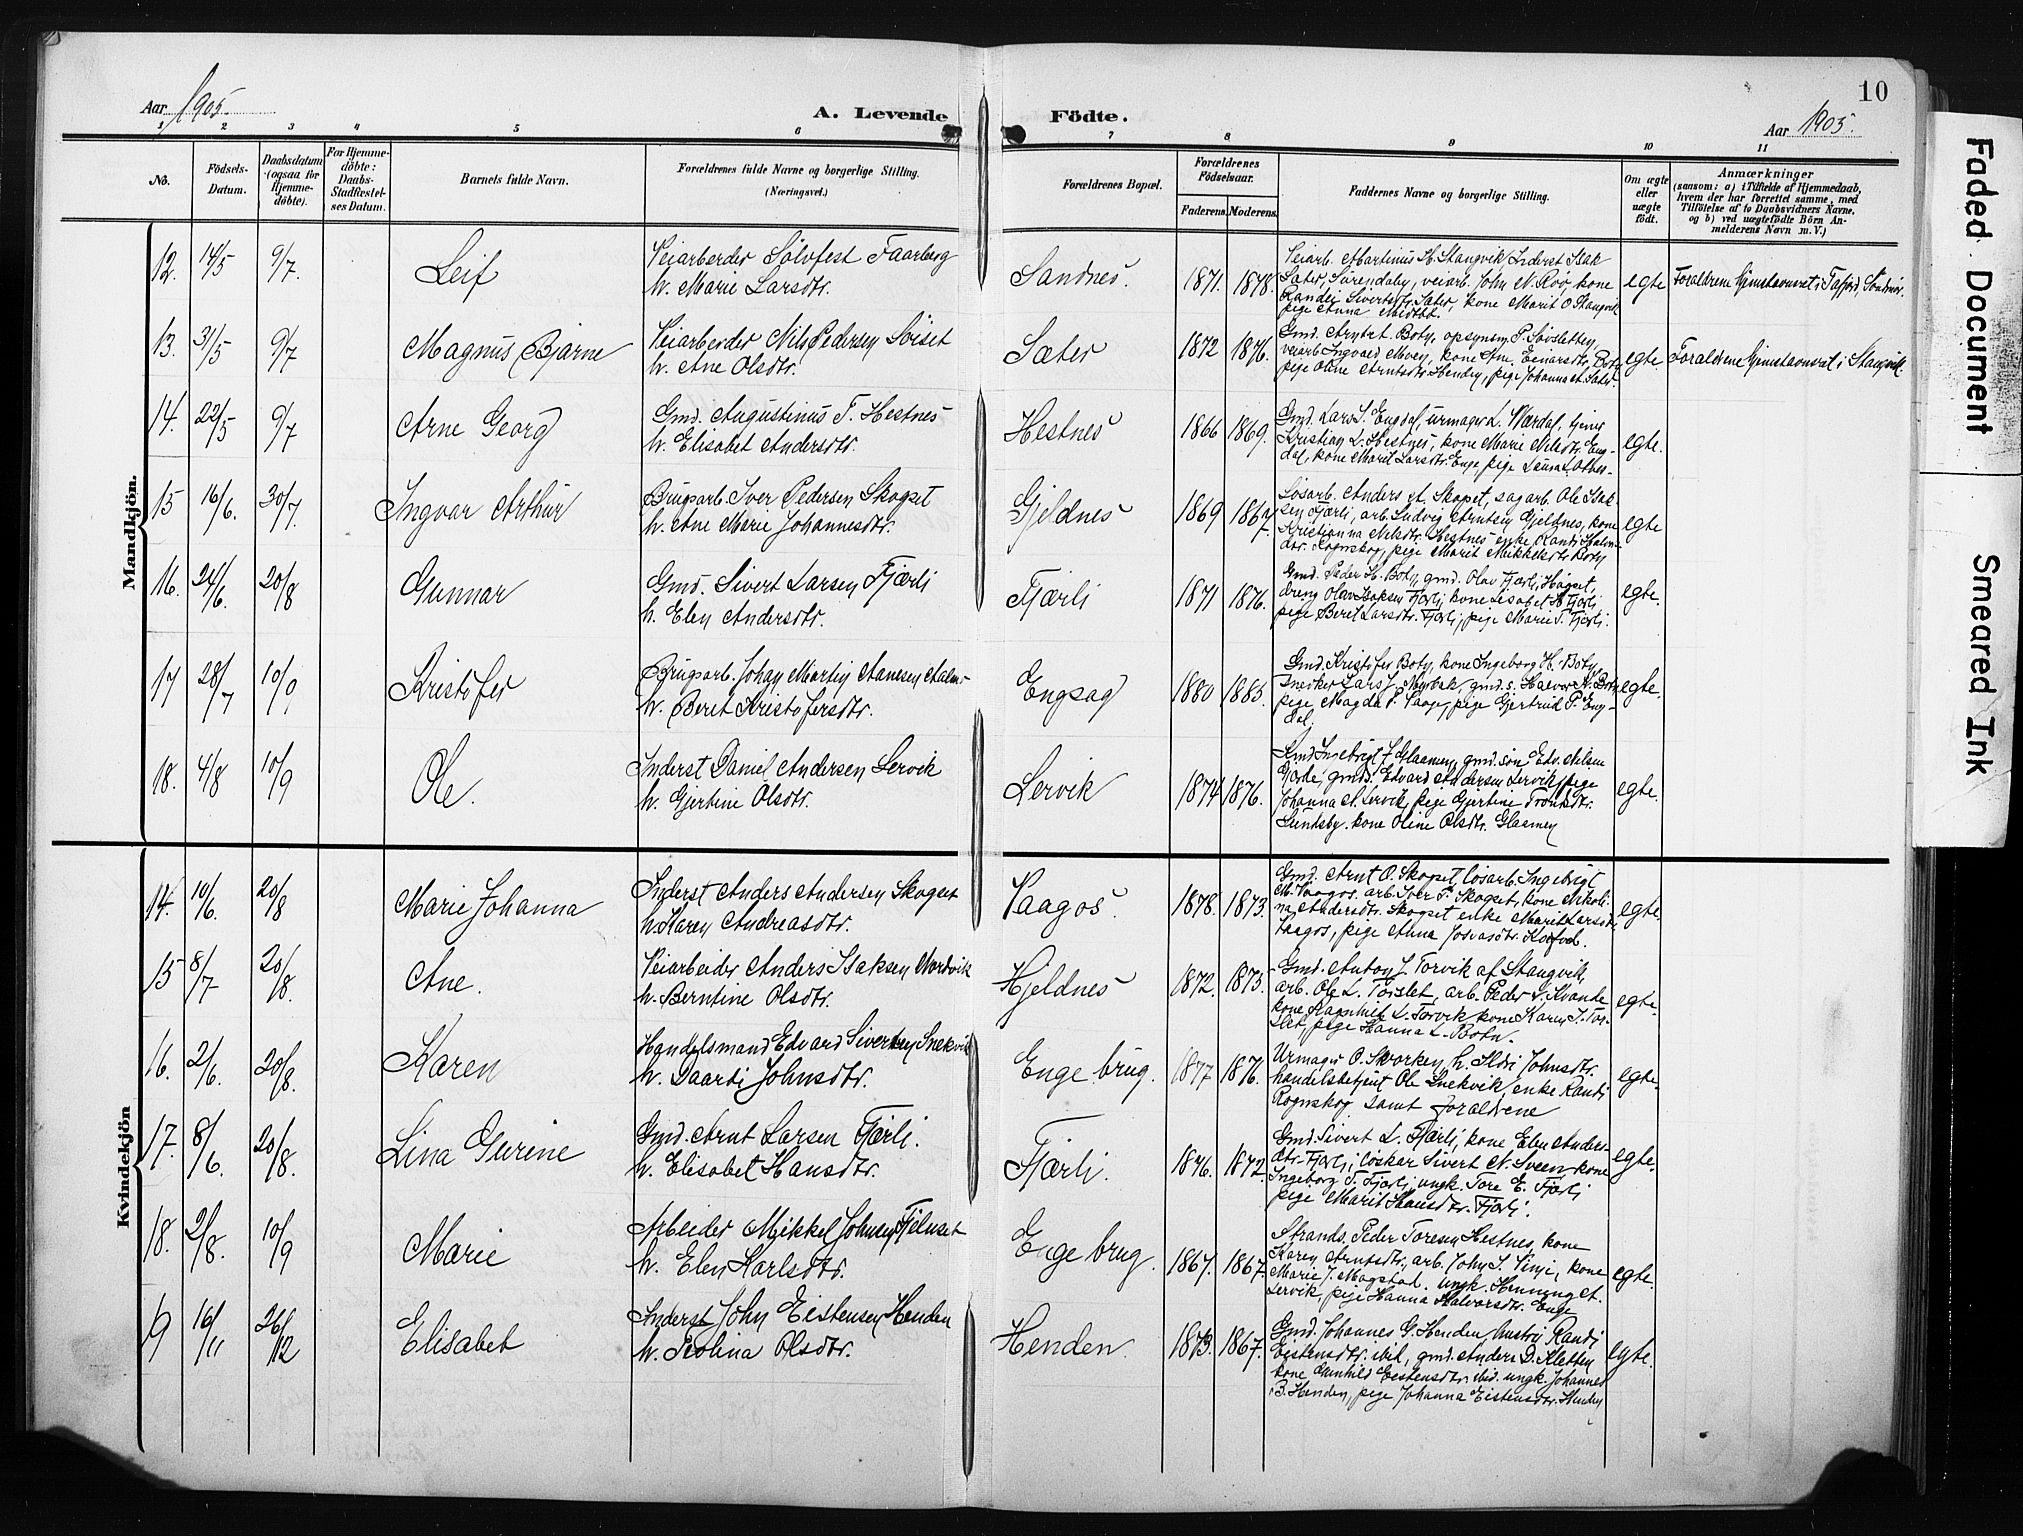 Aar 1905.
A. Levende
Födte.
Aar 1905.
10
1 2 3 4 5 6 7 8 9 10 11
No.
Födsels-
Datum.
Daabsdatum
(ogsaa for
Hjemme-
döbte).
For Hjemme-
döbte:
Daabs-
Stadfæstel-
ses Datum.
Barnets fulde Navn.
Forældrenes fulde Navne og borgerlige Stilling.
(Næringsvei.)
Forældrenes Bopæl.
Forældrenes
Födselsaar.
Faderens. Moderens.
Faddernes Navne og borgerlige Stilling.
Om ægte
eller
uægte
födt.
Anmærkninger
(saasom: a) i Tilfælde af Hjemmedaab,
hvem der har forrettet samme, med
Tilföielse af to Daabsvidners Navne,
og b) ved uægtefödte Börn An-
melderens Navn m. V.)
Mandkjön.
12. 14/5 9/7. Leif
Veiarbeider Sølvfest Faarberg
h. Marie Larsdtr.
Sandnes. 1871. 1878.
Veiarb. Martinus H. Stangvik
Sæter, Surendalen, veiarb. John N. Røv, kone
Sivertsdtr. Sæter, kone Marit O. Stangvik
pige Anna
egte
Forældrene hjemstavnsret i Tafjord, Søndmør.
13. 31/5 9/7 Magnus Bjarne
Veiarbeider Nils Pedersen Soiset
h. Ane Olsdtr.
Sæter 1872 1876.
Gmd. Botn, opsynsm. P. Søvsletten,
veiarb. Ingvald Moen, kone Ane Einarsdtr. Botn
pige Oline Arntsdtr. Henden, pige Johanna A. Sæter
egte
Forældrene hjemstavnsret i Stangvik
14. 22/5 9/7 Arne Georg
Gmd. Augustinus T. Hestnes
h. Elisabet Andersdtr.
Hestnes 1866 1869.
Gmd. Lars S. Engdal, urmager L. Værdal, tjener
Kristian L. Hestnes, kone Marie Nilsdtr. Eng-
dal, kone Marit Larsdtr. Enge, pige
egte.
15 16/6. 30/7. Ingvar Arthur
Brugsarb. Iver Pedersen Skogset
h. Ane Marie Johannesdtr.
Gjeldnes 1869 1867.
Løsarb. Anders A. Skogset, sagarb. Ole Isak-
sen Fjærli, arb. Ludvig Arntsen Gjeldnes, kone
Kristianna Nilsdtr. Hestnes enke Randi Halvor-
dtr. Rognskog, pige Marit Mikkelsdtr. Botn
egte
16. 24/6. 20/8 Gunnar
Gmd. Sivert Larsen Fjærli
h. Elen Andersdtr.
Fjærli 1871 1876.
Gmd. Peder H. Botn, gmd. Olav Fjærli, Hagset,
dreng Olav Isaksen Fjærli, kone Lisabet A. Fjærli
pige Beret Larsdtr. Fjærli, pige Marie T. Fjærli.
egte.
17 28/7 10/9 Kristofer
Brugsarb. Johan Martin Aanesen Aalmo
h. Beret Kristofersdtr.
Engsag 1880 1885.
Gmd. Kristofer Botn, kone Ingeborg H. Botn,
snedker Lars J. Myrbæk, gmd. s. Halvor K. Botn
pige Magda P. Vaage, pige Gjertrud P. Eng-
dal.
egte.
18. 4/8 10/9 Ole.
Inderst Daniel Andersen Lervik
h. Gjertine Olsdtr.
Lervik 1874 1876.
Gmd Ingebrigt J. Glaamen, gmd. søn Edv. Nilsen
Gjærde, gmds. Edvard Andersen Lervik, pige
Johanna A. Lervik, pige Gjertine Trondsdtr.
Sundsby. kone Oline Olsdtr. Glaamen
egte.
Kvindekjön
14. 10/6. 20/8 Marie Johanna
Inderst Anders Andersen Skogset
h. Karen Andreasdtr.
Vaagos. 1878. 1873.
Gmd. Arnt O. Skogset, løsarb. Ingebrigt
M. Vaagos, arb. Iver P. Skogset, kone Nikoli-
na Andersdtr. Skogset enke Marit Larsdtr.
Vaagos, pige Anna
egte.
15 8/7 20/8. Ane.
Veiarbeider Anders Isaksen Nordvik
h. Berntine Olsdtr.
Hjeldnes 1872. 1875.
Gmd. Anton J. Torvik af Stangvik,
arb. Ole L. Torslet, arb. Peder L. Kvande
kone Ragnhild L. Torvik kone Karen J. Tor-
slet, pige Hanna L. Botn.
egte.
16. 2/6. 20/8. Karen
Handelsmand Edvard Sivertsen Snekvik
h. Daarti Johnsdtr.
Enge brug. 1877 1876.
Urmager O. Skvorken, h. Ildri Johnsdtr.
handelsbetjent Ole Snekvik, enke Randi
Rognskog samt forældrene
egte.
17. 8/6. 20/8. Lina Gurine
Gmd. Arnt Larsen Fjærli.
h. Elisabet Hansdtr.
Fjærli. 1876. 1872
Gmd. Sivert L. Fjærli, kone Elen Anders-
dtr. Fjærli, løskar Sivert N. Sveen kone
Ingeborg T. Fjærli, ungk. Tore E. Fjærli
pige Marit Hansdtr. Fjærli.
egte.
18. 2/8. 10/9 Marie
Arbeider Mikkel Johnsen Fjelnset
h. Elen Karlsdtr.
Enge brug. 1867. 1867.
Strands. Peder Toresen Hestnes, kone
Karen Arntsdtr., arb. John S. Sinje, kone
Marie J. Magstad. ungk. Henning A.
Lervik, pige Hanna Halvorsdtr. Enge
egte.
19 16/11 26/12 Elisabet
Inderst John Eistensen Henden
h. Serina Olsdtr.
Henden. 1873. 1867.
Gmd. Johannes G. Henden, hustru Randi
Eistensdtr. ibid, gmd. Anders D. Kletten
kone Gunhild Eistensdtr. ibid. ungk. Johannes
B. Henden, pige Johanna Eistensdtr. Henden
egte.
Faded Document
Smeared Ink